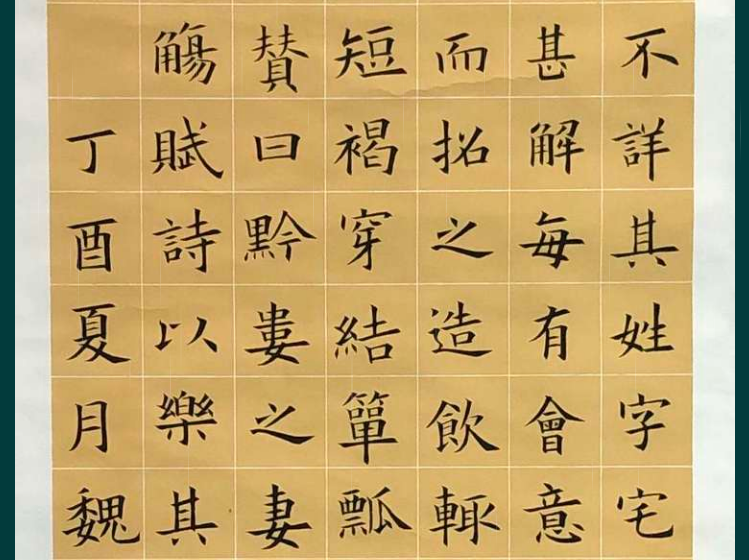 不詳其姓字宅
甚解每有會意
而招之造飲輒
短褐穿結簞瓢
賛曰黔婁之妻
觴賦詩以樂其
丁酉夏月魏